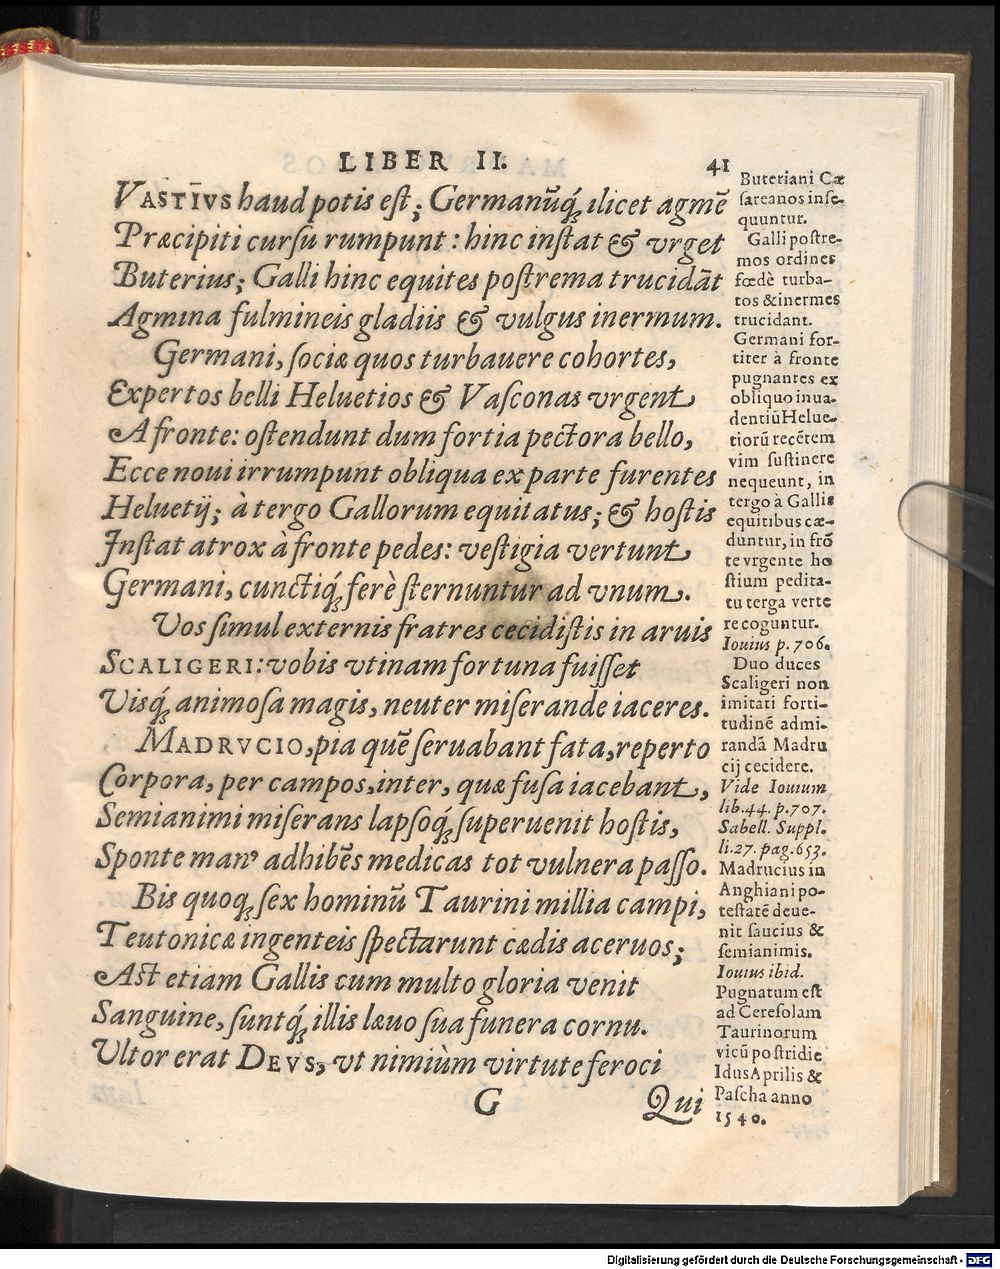 LIBER II. 41
VASTĪVS haud potis est; Germanūq́; ilicet agmē
Præcipiti cursu rumpunt: hinc instat & vrget
Buterius; Galli hinc equites postrema trucidāt
Agmina fulmineis gladiis & vulgus inermum.
Germani, sociæ quos turbauere cohortes,
Expertos belli Heluetios & Vasconas vrgent
A fronte: ostendunt dum fortia pectora bello,
Ecce noui irrumpunt obliqua ex parte furentes
Heluetij; à tergo Gallorum equitatus; & hostis
Instat atrox à fronte pedes: vestigia vertunt
Germani, cunctiq́; ferè sternuntur ad vnum.
Vos simul externis fratres cecidistis in aruis
SCALIGERI: vobis vtinam fortuna fuisset
Visq́; animosa magis, neuter miserande iaceres.
MADRVCIO, pia quē seruabant fata, reperto
Corpora, per campos, inter, quæ fusa iacebant,
Semianimi miserans lapsoq́; superuenit hostis,
Sponte manꝰ adhibēs medicas tot vulnera passo.
Bis quoq; sex hominū Taurini millia campi,
Teutonicæ ingenteis spectarunt cædis aceruos;
Ast etiam Gallis cum multo gloria venit
Sanguine, suntq́; illis læuo sua funera cornu.
Vltor erat DEVS, vt nimiùm virtute feroci
G Qui
Buteriani Cæ
sareanos inse-
quuntur.
Galli postre-
mos ordines
fœdè turba-
tos & inermes
trucidant.
Germani for-
titer à fronte
pugnantes ex
obliquo inua-
dentiū Helue-
tiorū recētem
vim sustinere
nequeunt, in
tergo à Gallis
equitibus cæ-
duntur, in frō
te vrgente ho
stium pedita-
tu terga verte
re coguntur.
Iouius p. 706.
Duo duces
Scaligeri non
imitati forti-
tudinē admi-
randā Madru
cij cecidere.
Vide Iouium
lib. 44. p. 707.
Sabell. Suppl.
li. 27. pag. 653.
Madrucius in
Anghiani po-
testatē deue-
nit saucius &
semianimis.
Iouius ibid.
Pugnatum est
ad Ceresolam
Taurinorum
vicū postridie
Idus Aprilis &
Pascha anno
1540.
Digitalisierung gefördert durch die Deutsche Forschungsgemeinschaft - DFG